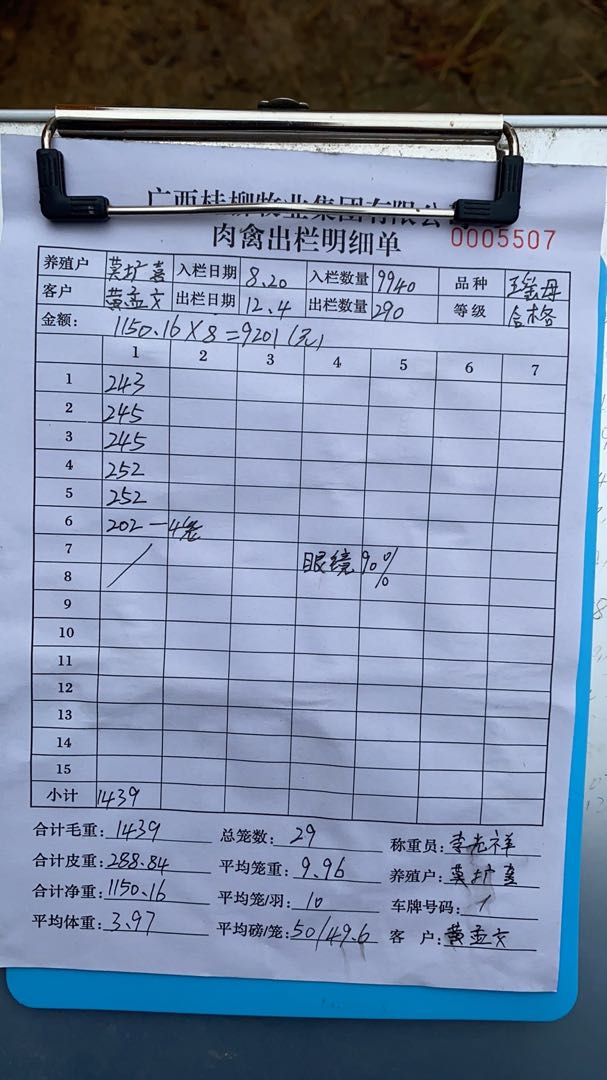 广西桂柳牧业集团有限公
肉禽出栏明细单 0005507
养殖户 莫扩喜 入栏日期 8.20 入栏数量 9940 品种 瑶母
客户 黄孟文 出栏日期 12.4 出栏数量 290 等级 合格
金额: 1150.16×8=9201(元)
1 2 3 4 5 6 7
1 243
2 245
3 245
4 252
5 252
6 202-4笼
7 眼镜90%
8
9
10
11
12
13
14
15
小计 1439
合计毛重: 1439 总笼数: 29 称重员: 李光祥
合计皮重: 288.84 平均笼重: 9.96 养殖户: 莫扩喜
合计净重: 1150.16 平均笼/羽: 10 车牌号码:
平均体重: 3.97 平均磅/笼: 50/49.6 客户: 黄孟文